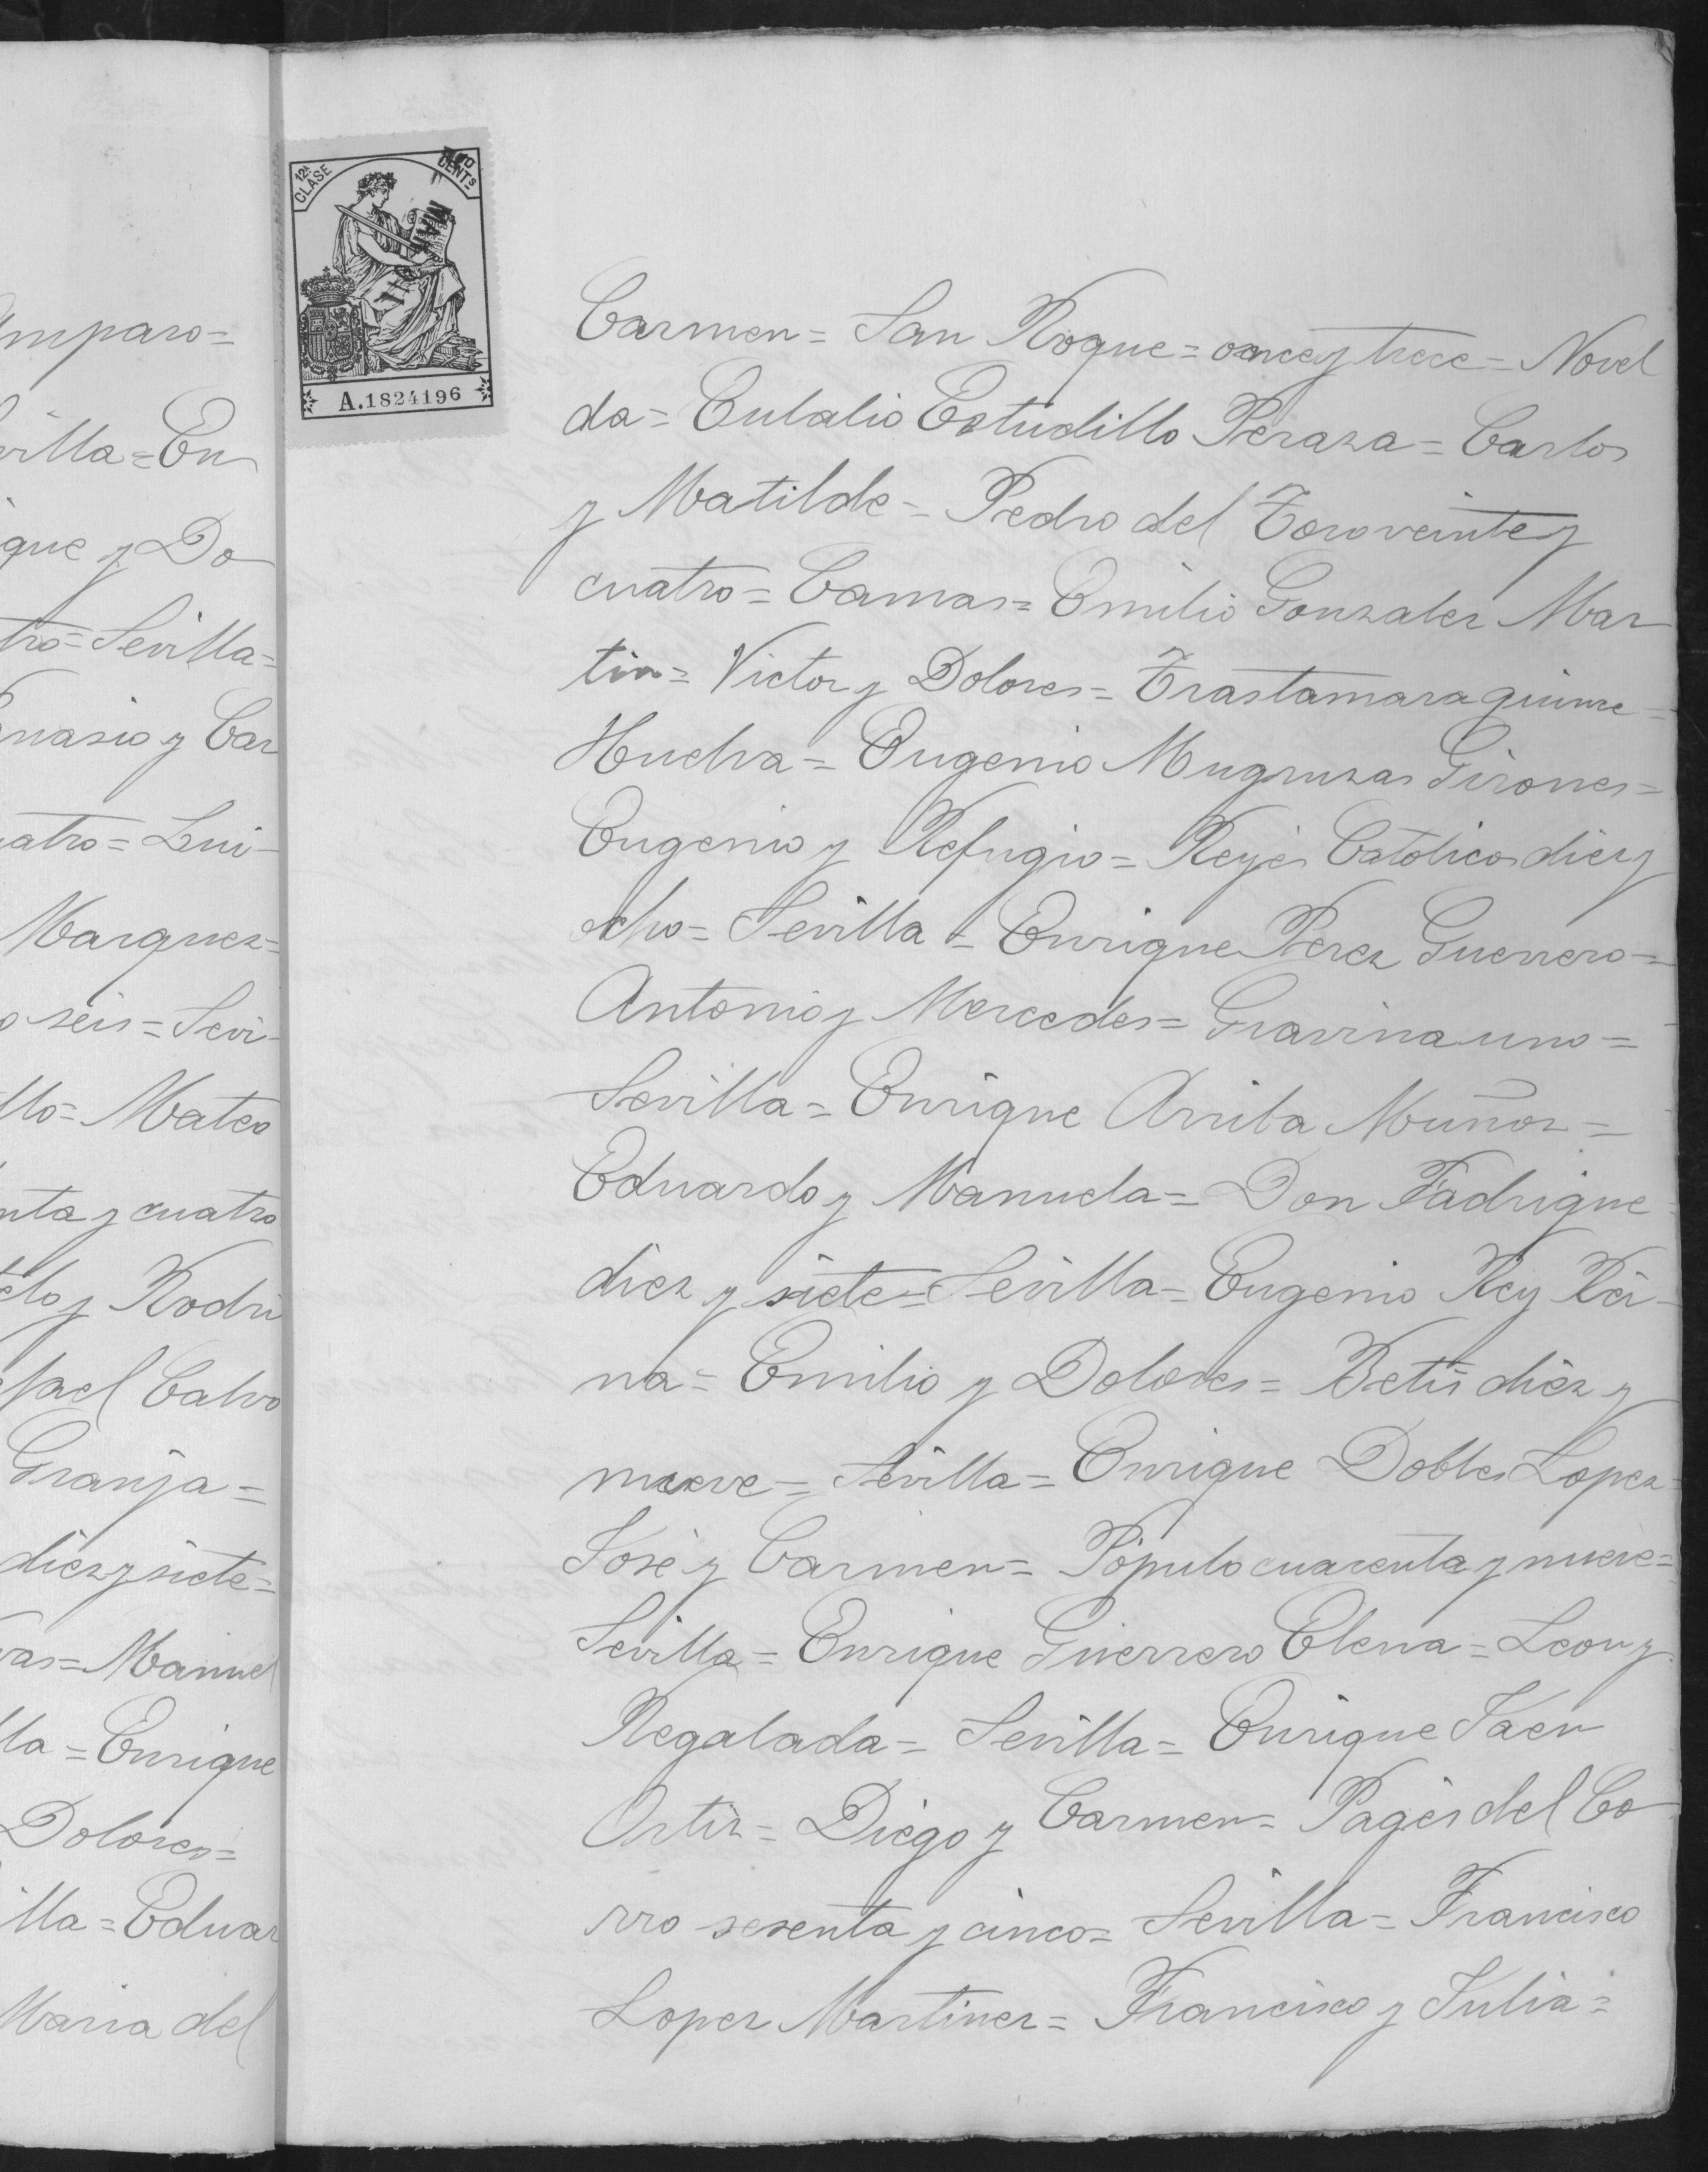 mparo=
villa=En
que y Do
tro=Sevilla=
nasio y Car
atro=Lui-
Marquez=
o seis=Sevi-
llo=Mateo
nta y cuatro
elo y Rodri
fael Calvo
Granja=
diez y siete=
vas=Manuel
lla=Enrique
Dolores=
illa=Eduar
Maria del
12ª CLASE
CENTS
A.1824196
Carmen= San Roque= once y trece= Novel
da= Eulalio Estudillo Peraza= Carlos
y Matilde= Pedro del Toro veinte y
cuatro= Camas= Emilio Gonzalez Mar
tin= Victor y Dolores= Trastamara quince=
Huelva= Eugenio Muguruzas Girones=
Eugenio y Refugio= Reyes Católicos diez y
ocho= Sevilla= Enrique Perez Guerrero=
Antonio y Mercedes= Gravina uno=
Sevilla= Enrique Arriba Muñoz=
Eduardo y Manuela= Don Fadrique=
diez y siete= Sevilla= Eugenio Rey Rei-
na= Emilio y Dolores= Betis diez y
nueve= Sevilla= Enrique Dobles Lopez=
José y Carmen= Pópulo cuarenta y nueve=
Sevilla= Enrique Guerrero Elena= Leon y
Regalada= Sevilla= Enrique Jaen
Ortiz= Diego y Carmen= Pagés del Co
rro sesenta y cinco= Sevilla= Francisco
Lopez Martinez= Francisco y Julia=